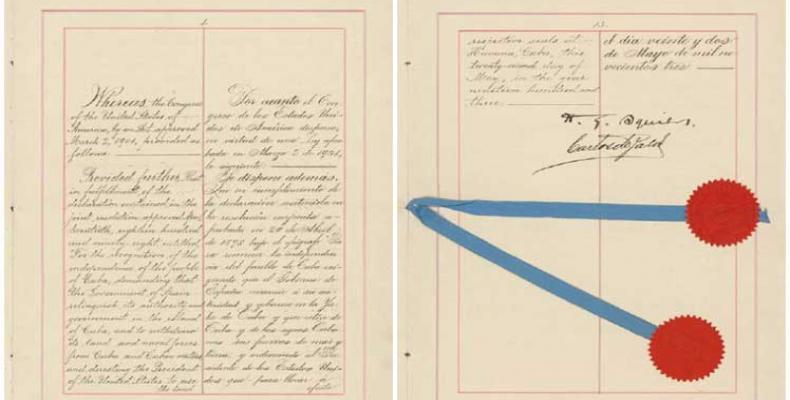 1.
Whereas the Congress
of the United States of
America, by an Act approved
March 2, 1901, provided as
follows
Provided further That
in fulfillment of the
declaration contained in the
joint resolution approved April
twentieth, eighteen hundred
and ninety-eight, entitled
For the recognition of the
independence of the people
of Cuba, demanding that
the Government of Spain
relinquish its authority and
government in the island
of Cuba, and to withdraw
its land and naval forces
from Cuba and Cuban waters
and directing the President
of the United States to use
the land
Por cuanto el Con-
greso de los Estados Uni-
dos de América dispuso,
en virtud de una ley apro-
bada en Marzo 2 de 1901,
lo siguiente
Se dispone además,
Que en cumplimiento de
la declaración contenida en
la resolución conjunta a-
probada en 20 de Abril
de 1898 bajo el epígrafe Pa-
ra reconocer la independen-
cia del pueblo de Cuba exi-
giendo que el Gobierno de
España renuncie á su au-
toridad y gobierno en la Is-
la de Cuba y que retire de
Cuba y de las aguas Cuba-
nas sus fuerzas de mar y
tierra y ordenando al Pre-
sidente de los Estados Uni-
dos que para llevar á
efecto
13.
respective seals at
Havana, Cuba, this
twenty-second day of
May, in the year
nineteen hundred and
three.
el dia veinte y dos
de Mayo de mil no
vecientos tres
H. G. Squiers.
Carlos de Zaldo